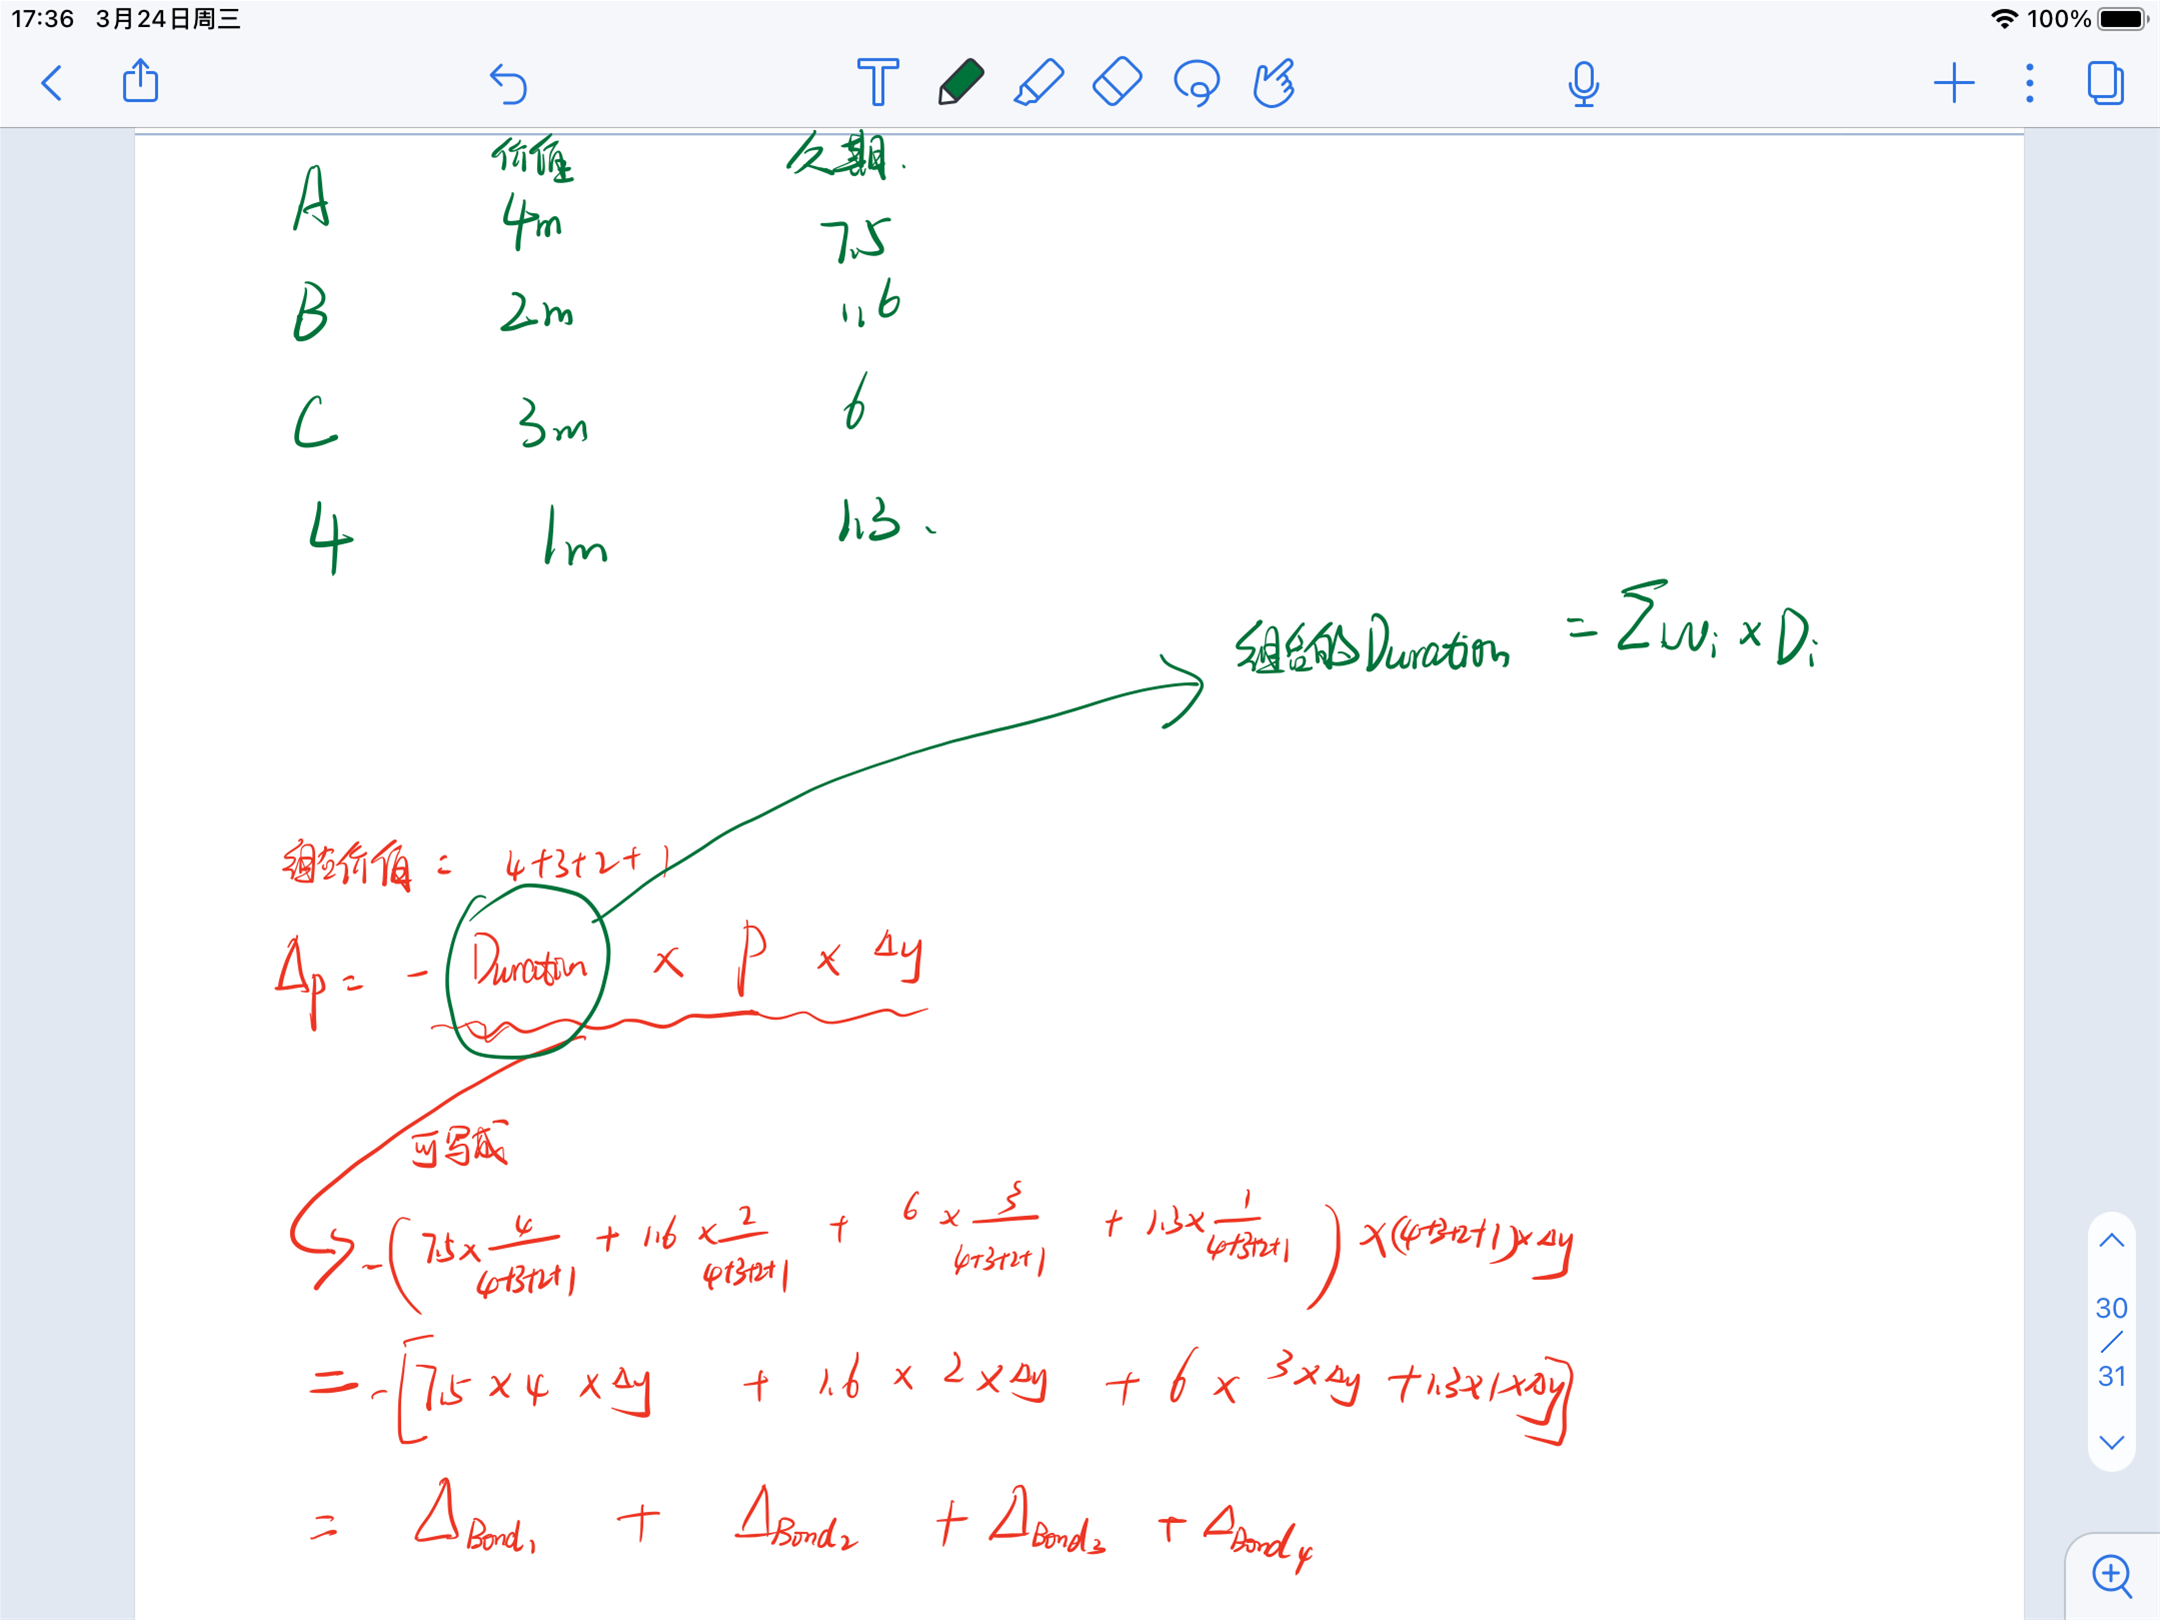 17:36 3月24日周三 100%
价值 久期.
A 4m 7.5
B 2m 1.6
C 3m 6
4 1m 1.3.
组合的Duration = ΣWi × Di
组合价值 = 4+3+2+1
Δp = - Duration × P × Δy
可写成
-(7.5× 4/(4+3+2+1) + 1.6 × 2/(4+3+2+1) + 6 × 3/(4+3+2+1) + 1.3× 1/(4+3+2+1)) ×(4+3+2+1)×Δy
= -[7.5 × 4 × Δy + 1.6 × 2 × Δy + 6 × 3 × Δy + 1.3×1×Δy]
= ΔBond1 + ΔBond2 + ΔBond3 + ΔBond4
30
/
31